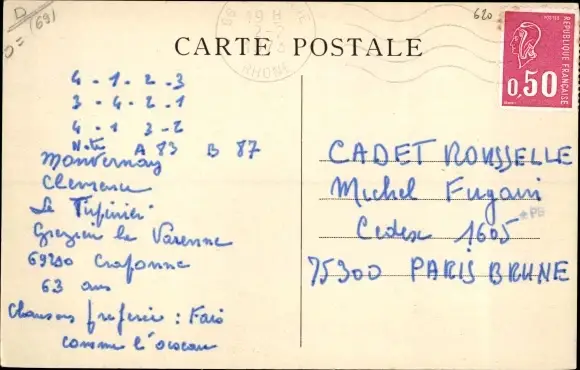 D
(69)
620
19 H
RHONE
CARTE POSTALE
REPUBLIQUE FRANÇAISE
0,50
4 - 1 - 2 - 3
3 - 4 - 2 - 1
4 - 1 3 - 2
Note A 83 B 87
Clemence
Le
Grezieu la Varenne
69290 Craponne
63 ans
Chanson preferée : Fais
comme l'oiseau
CADET ROUSSELLE
Michel Fugain
Cedex 1605
75300 PARIS BRUNE